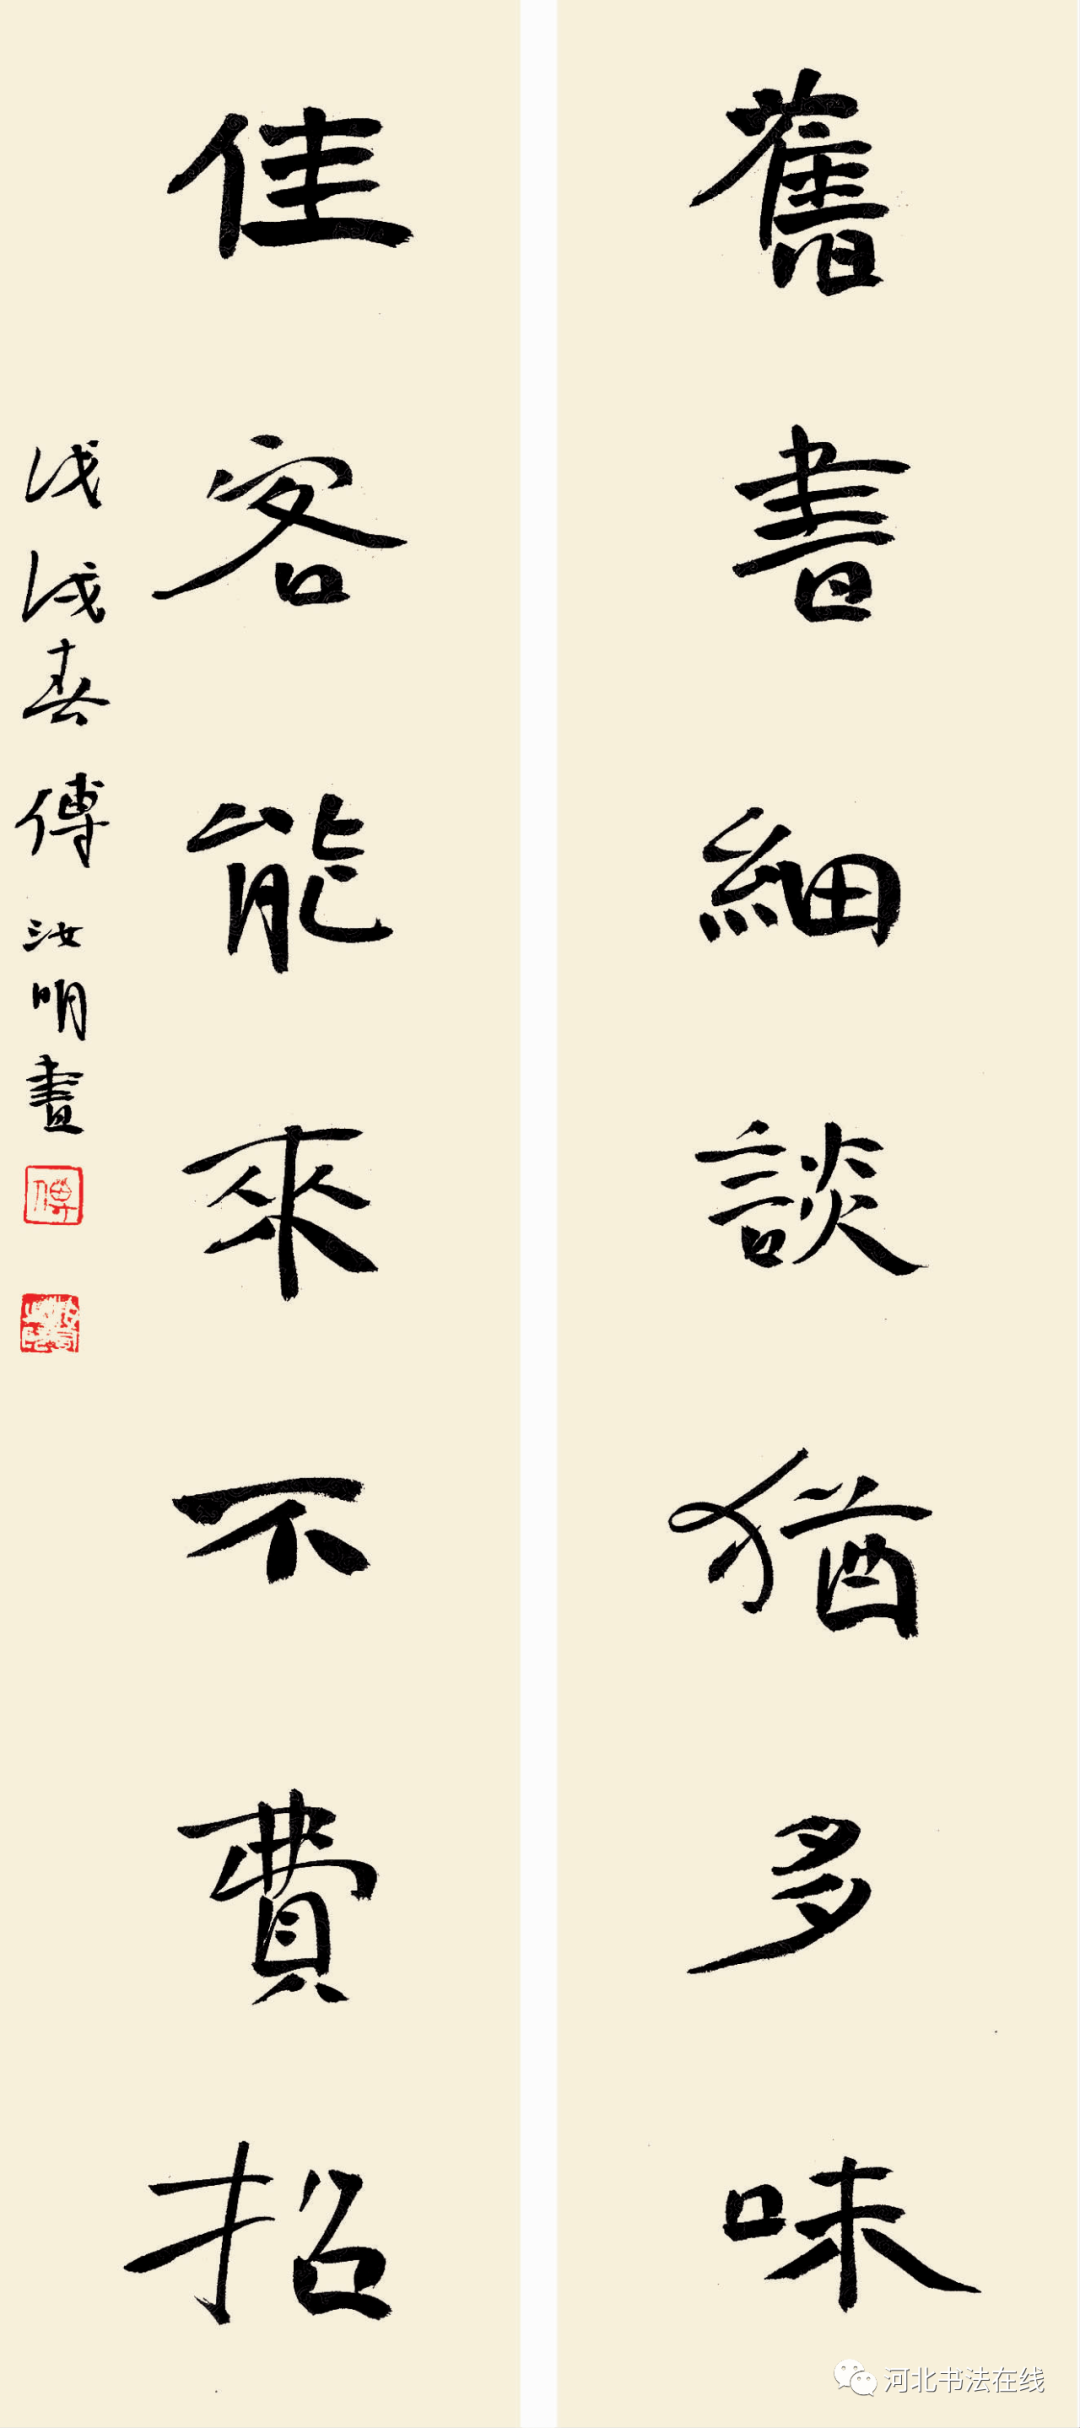 舊書細談猶多味
佳客能來不費招
戊戌春傅汝明書
傅
河北书法在线